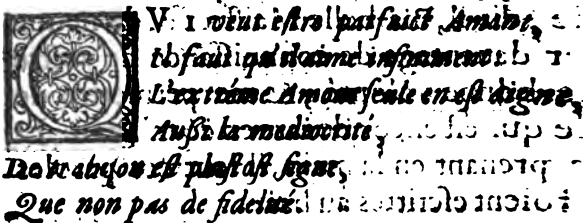 QVI veut estre parfaict Amant,
Il faut qu'il aime infiniment
L'extréme Amour seule en est digne,
Aussi la mediocrité,
De trahison est plustost signe,
Que non pas de fidelité